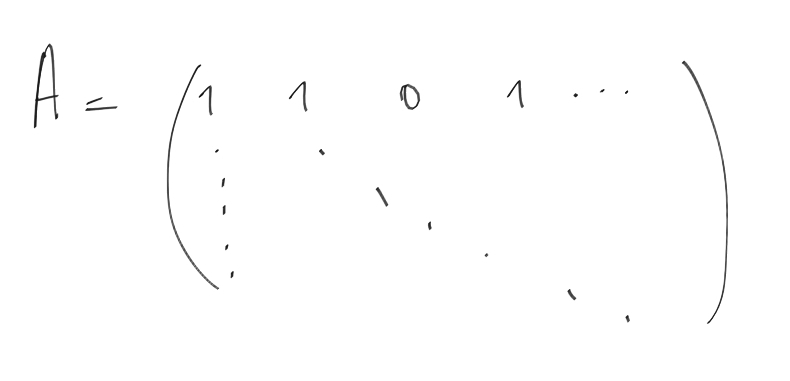 A = ( 1 1 0 1 ... )